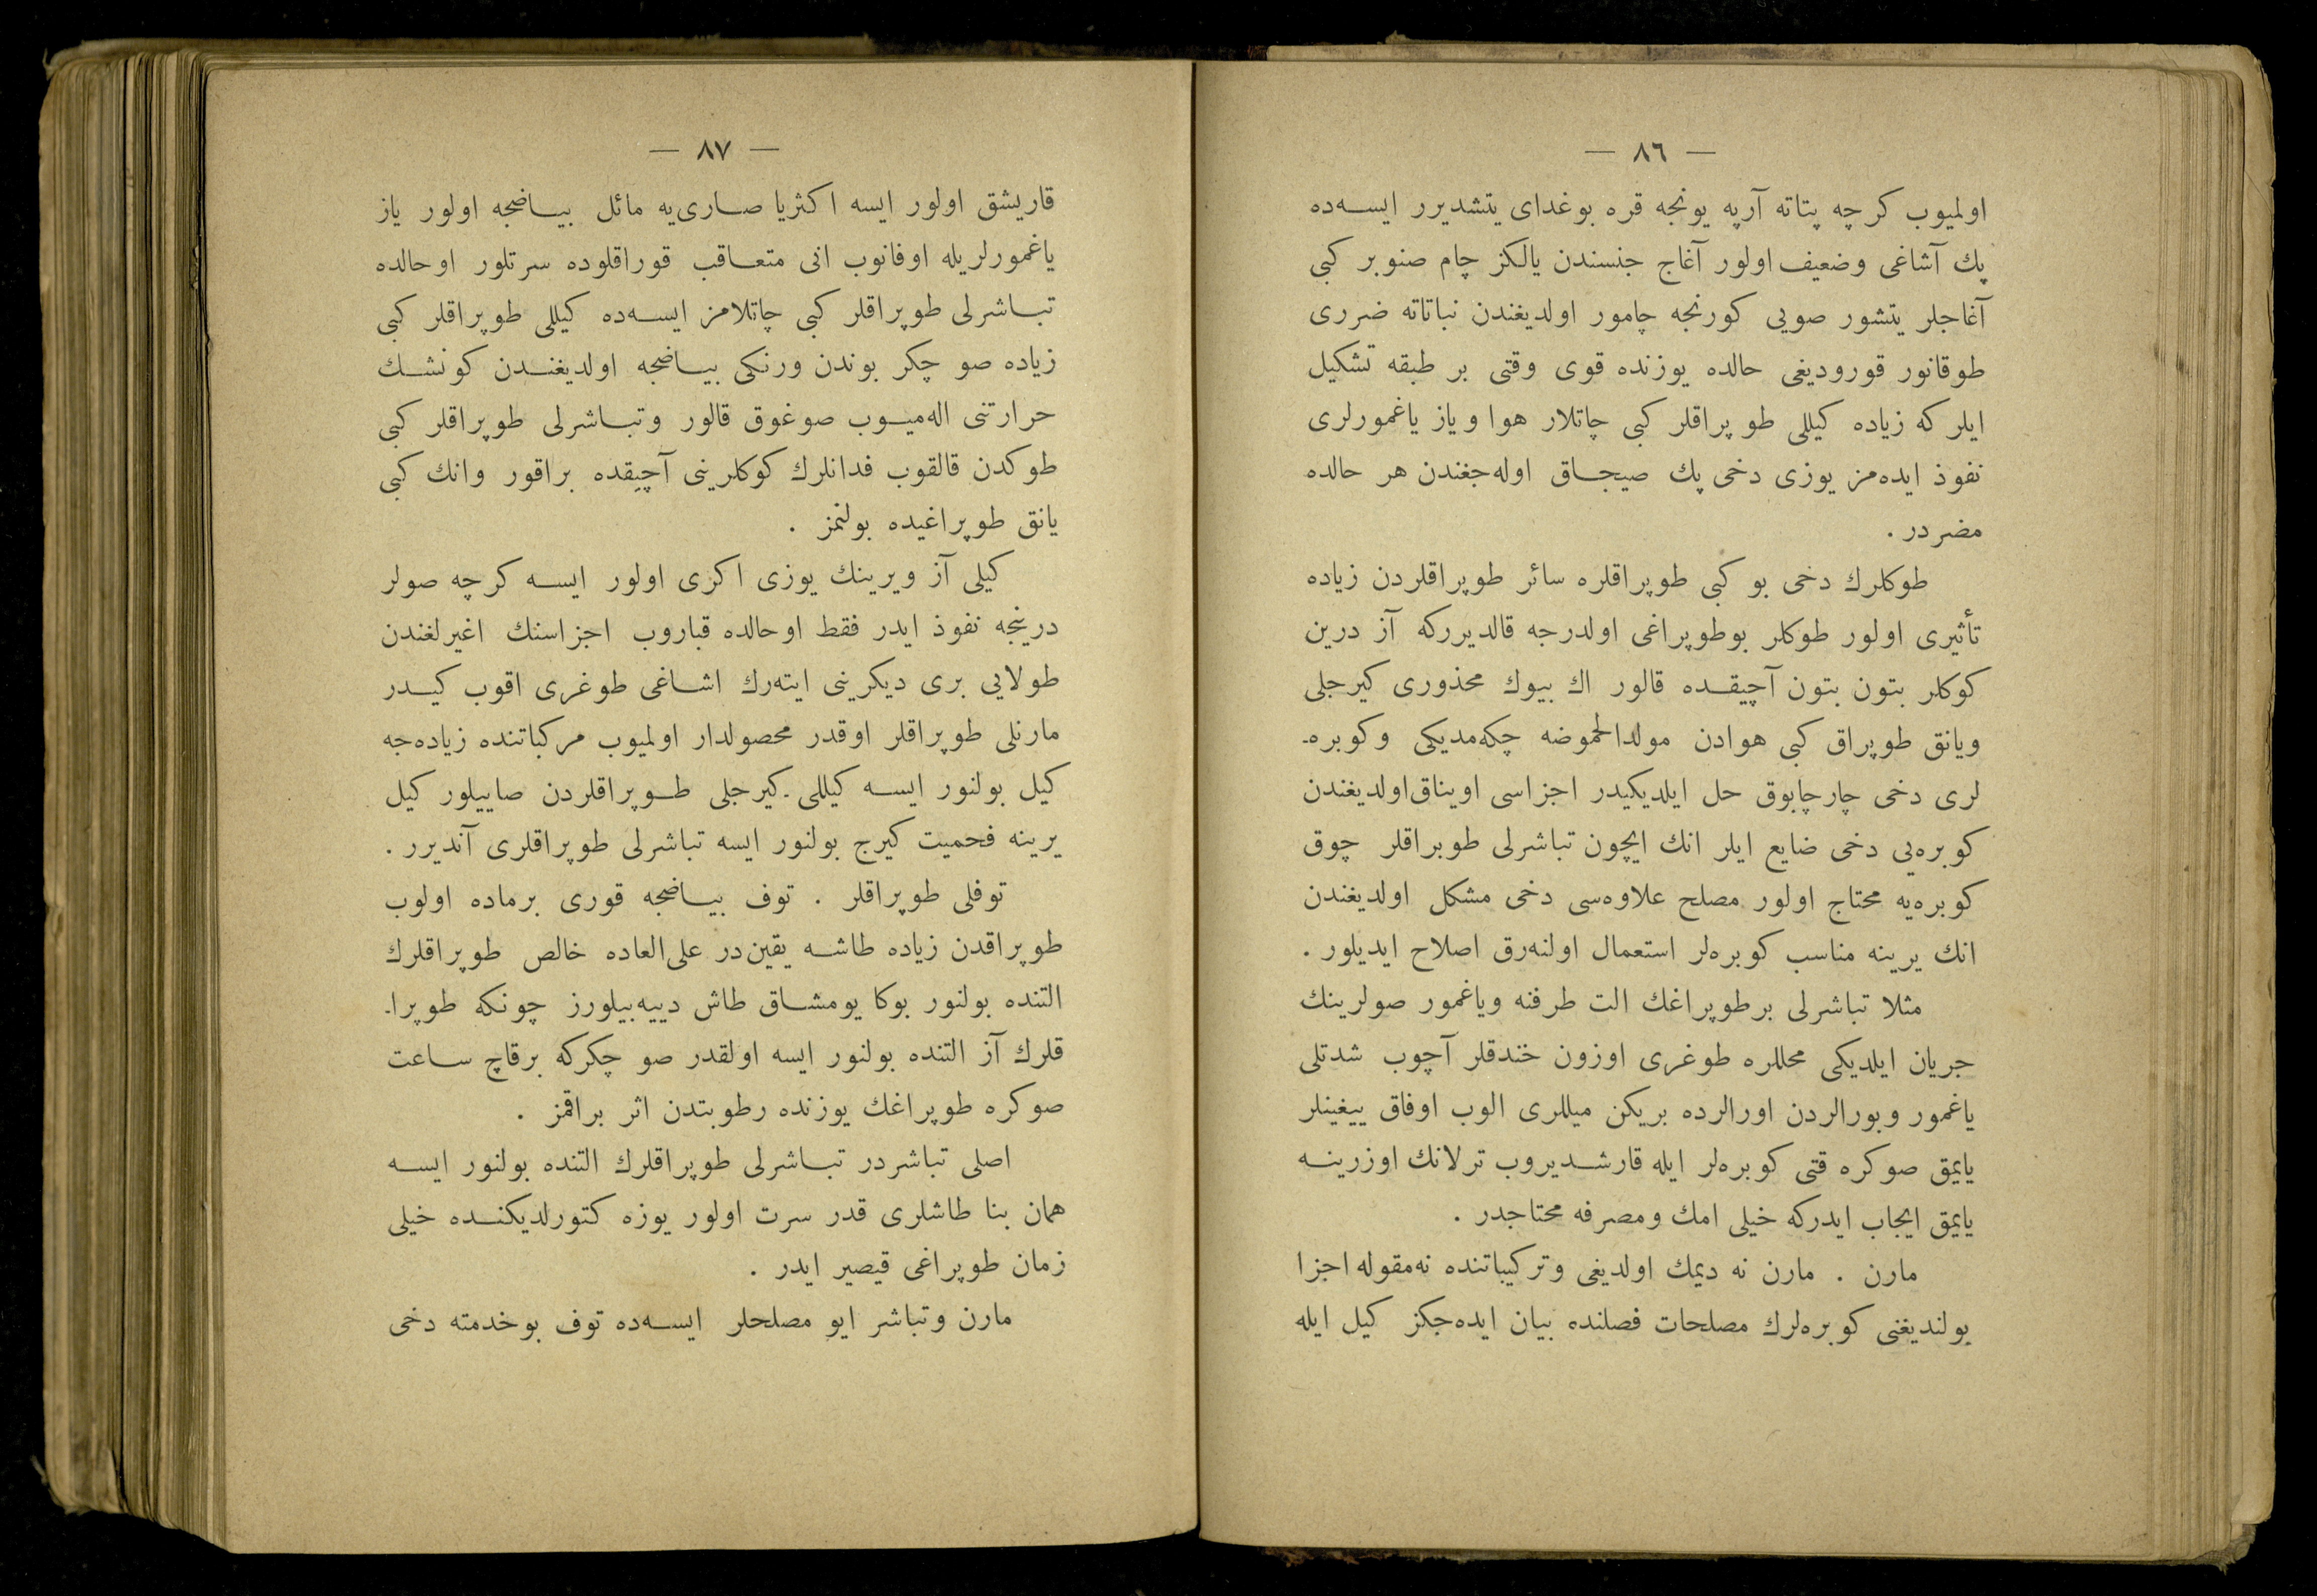 — ٨٦ —
اولميوب كرچه پتاته آرپه يونجه قره بوغدای يتشديرر ايسه‌ده
پك آشاغی وضعيف اولور آغاج جنسندن يالكز چام صنوبر كبی
آغاجلر يتشور صويی كورنجه چامور اولديغندن نباتاته ضرری
طوقانور قوروديغی حالده يوزنده قوی وقتی بر طبقه تشكيل
ايلر كه زياده كيللی طوپراقلر كبی چاتلار هوا وياز ياغمورلری
نفوذ ايده‌مز يوزی دخی پك صيجاق اوله‌جغندن هر حالده
مضردر .
طوكلرك دخی بو كبی طوپراقلره سائر طوپراقلردن زياده
تأثيری اولور طوكلر بوطوپراغی اولدرجه قالديرركه آز درين
كوكلر بتون بتون آچيقده قالور اك بيوك محذوری كيرجلی
ويانق طوپراق كبی هوادن مولدالحموضه چكه‌مديكی وكوبره‌ـ
لری دخی چارچابوق حل ايلديكيدر اجزاسی اويناق اولديغندن
كوبره‌يی دخی ضايع ايلر انك ايچون تباشرلی طوبراقلر چوق
كوبره‌يه محتاج اولور مصلح علاوه‌سی دخی مشكل اولديغندن
انك يرينه مناسب كوبره‌لر استعمال اولنه‌رق اصلاح ايديلور .
مثلا تباشرلی برطوپراغك الت طرفنه وياغمور صولرينك
جريان ايلديكی محللره طوغری اوزون خندقلر آچوب شدتلی
ياغمور وبورالردن اورالرده بريكن ميللری الوب اوفاق ييغينلر
يايمق صوكره قتی كوبره‌لر ايله قارشديروب ترلانك اوزرينه
يايمق ايجاب ايدركه خيلی امك ومصرفه محتاجدر .
مارن . مارن نه ديمك اولديغی وتركيباتنده نه‌مقوله اجزا
بولنديغنی كوبره‌لرك مصلحات فصلنده بيان ايده‌جكز كيل ايله
— ٨٧ —
قاريشق اولور ايسه اكثريا صاری‌يه مائل بياضجه اولور ياز
ياغمورلريله اوفانوب انی متعاقب قوراقلوده سرتلور اوحالده
تباشرلی طوپراقلر كبی چاتلامز ايسه‌ده كيللی طوپراقلر كبی
زياده صو چكر بوندن ورنكی بياضجه اولديغندن كونشك
حرارتنی اله‌ميوب صوغوق قالور وتباشرلی طوپراقلر كبی
طوكدن قالقوب فدانلرك كوكلرينی آچيقده براقور وانك كبی
يانق طوپراغيده بولنمز .
كيلی آز ويرينك يوزی اكری اولور ايسه كرچه صولر
درينجه نفوذ ايدر فقط اوحالده قباروب اجزاسنك اغيرلغندن
طولايی بری ديكرينی ايته‌رك اشاغی طوغری اقوب كيدر
مارنلی طوپراقلر اوقدر محصولدار اولميوب مركباتنده زياده‌جه
كيل بولنور ايسه كيللی ـ كيرجلی طوپراقلردن صاييلور كيل
يرينه فحميت كيرج بولنور ايسه تباشرلی طوپراقلری آنديرر .
توفلی طوپراقلر . توف بياضجه قوری برماده اولوب
طوپراقدن زياده طاشه يقين‌در علی‌العاده خالص طوپراقلرك
التنده بولنور بوكا يومشاق طاش دييه‌بيلورز چونكه طوپراـ
قلرك آز التنده بولنور ايسه اولقدر صو چكركه برقاچ ساعت
صوكره طوپراغك يوزنده رطوبتدن اثر براقمز .
اصلی تباشردر تباشرلی طوپراقلرك التنده بولنور ايسه
همان بنا طاشلری قدر سرت اولور يوزه كتورلديكنده خيلی
زمان طوپراغی قيصير ايدر .
مارن وتباشر ايو مصلحلر ايسه‌ده توف بوخدمته دخی